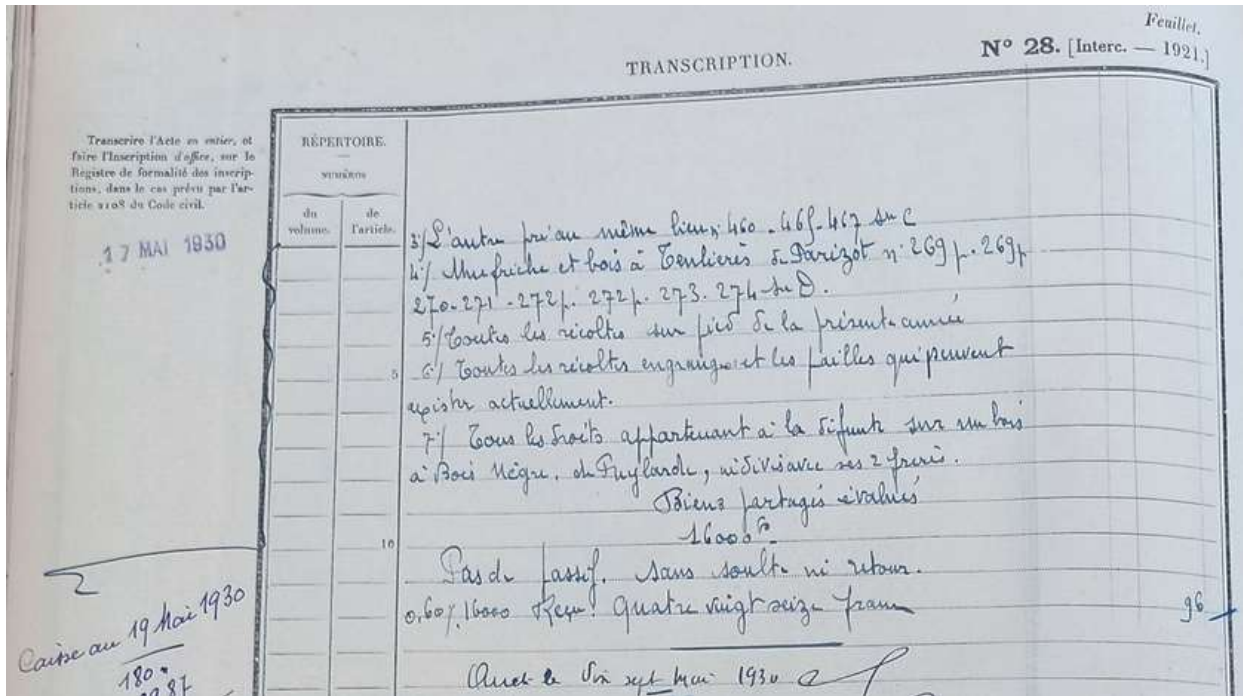 Feuillet.
N° 28. [Interc. — 1921.]
TRANSCRIPTION.
Transcrire l'Acte en entier, et
faire l'Inscription d'office, sur le
Registre de formalité des inscrip-
tions, dans le cas prévu par l'ar-
ticle 2108 du Code civil.
17 MAI 1930
RÉPERTOIRE.
NUMÉROS
du
volume.
de
l'article.
3°/ L'autre pré au même lieu n° 460 - 465 - 467 son C
4°/ friche et bois à de Parizot n° 269 p. 269 p
270 - 271 - 272 p. 272 p. 273. 274 son D.
5°/ Toutes les récoltes sur pied de la présente année
5
6°/ Toutes les récoltes engrangées et les pailles qui peuvent
exister actuellement.
7°/ Tous les droits appartenant à la défunte sur un bois
à Bois Nègre, de Puylarde, indivis avec ses 2 frères.
Biens partagés évalués
16000 f.
10
Pas de passif. Sans soulte ni retour.
0,60 % 16000 Reçu: Quatre vingt seize francs
96
Caisse au 19 Mai 1930
180
87
le Dix sept Mai 1930